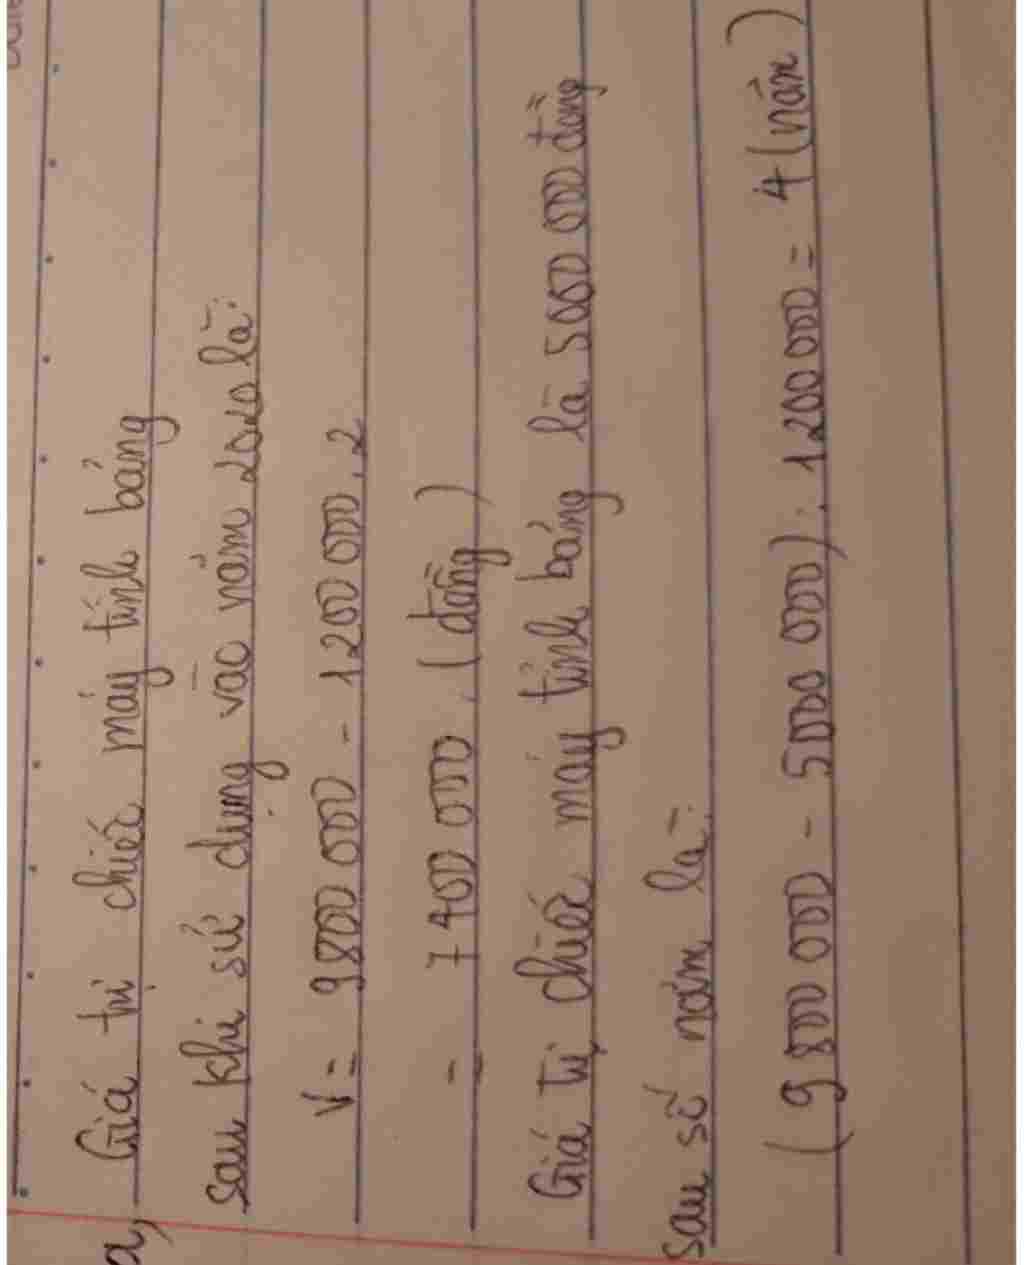 a, Giá trị chiếc máy tính bảng
sau khi sử dụng vào năm 2020 là:
V = 9800 000 - 1200 000 . 2
= 7400 000 . (đồng)
Giá trị chiếc máy tính bảng là 5000 000 đồng
sau số năm là:
(9800 000 - 5000 000) : 1200 000 = 4 (năm)